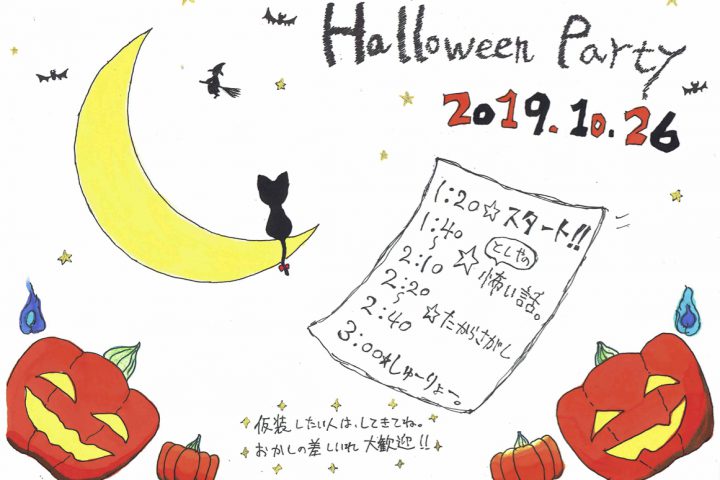 Halloween Party
2019.10.26
1:20☆スタート!!
1:40
〜
2:10 ☆としやの怖い話。
2:20
〜
2:40 ☆たからさがし
3:00*しゅーりょー。
仮装したい人は、してきてね。
おかしの差しいれ 大歓迎!!